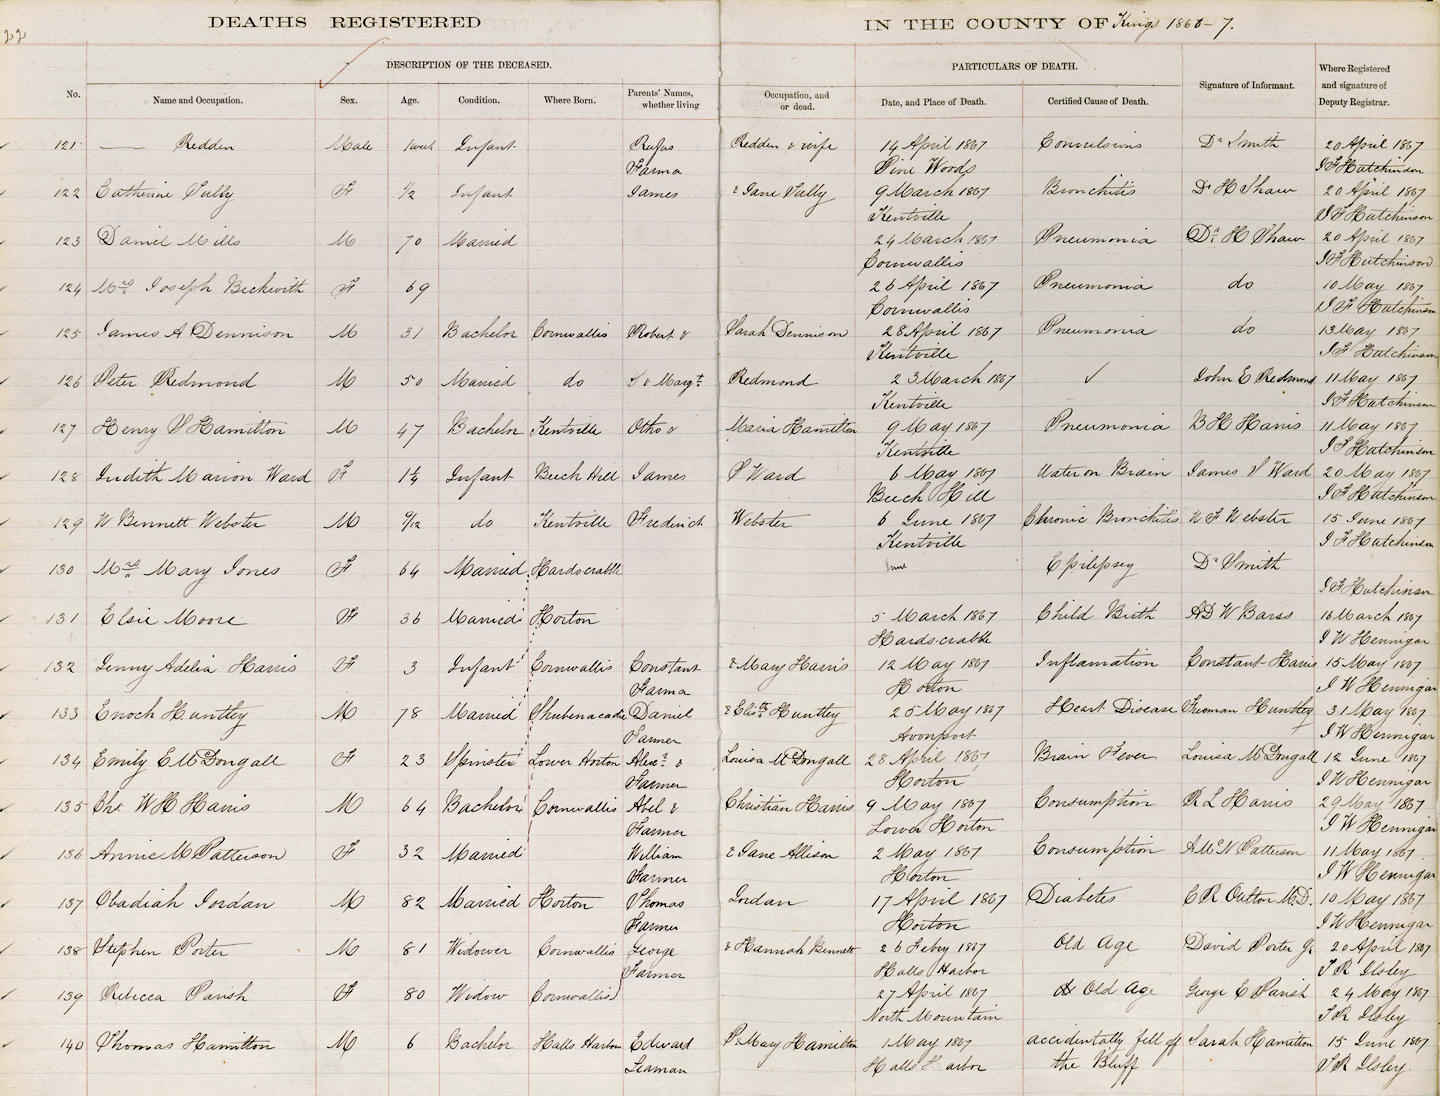 22
DEATHS REGISTERED IN THE COUNTY OF Kings 1866-7.
DESCRIPTION OF THE DECEASED. PARTICULARS OF DEATH.
No. Name and Occupation. Sex. Age. Condition. Where Born. Parents' Names, whether living Occupation, and or dead. Date, and Place of Death. Certified Cause of Death. Signature of Informant. Where Registered and signature of Deputy Registrar.
121 —— Redden Male 1 week Infant Rufus Redden & wife 14 April 1867 Convulsions Dr Smith 20 April 1867
Farma Pine Woods J F Hutchinson
122 Catherine Tully F 1/2 Infant James & Jane Tully 9 March 1867 Bronchitis Dr H Shaw 20 April 1867
Kentville J F Hutchinson
123 Daniel Mills M 70 Married 24 March 1867 Pneumonia Dr H Shaw 20 April 1867
Cornwallis J F Hutchinson
124 Mrs Joseph Beckwith F 69 26 April 1867 Pneumonia do 10 May 1867
Cornwallis J F Hutchinson
125 James A Dennison M 31 Bachelor Cornwallis Robert & Sarah Dennison 28 April 1867 Pneumonia do 13 May 1867
Kentville J F Hutchinson
126 Peter Redmond M 50 Married do & Margt Redmond 23 March 1867 ✓ John E Redmond 11 May 1867
Kentville J F Hutchinson
127 Henry S Hamilton M 47 Bachelor Kentville Otho & Maria Hamilton 9 May 1867 Pneumonia B H Harris 11 May 1867
Kentville J F Hutchinson
128 Judith Marion Ward F 1 1/4 Infant Beech Hill James S Ward 6 May 1867 Water on Brain James S Ward 20 May 1867
Beech Hill J F Hutchinson
129 W Bennett Webster M 9/12 do Kentville Frederick Webster 6 June 1867 Chronic Bronchitis W F Webster 15 June 1867
Kentville J F Hutchinson
130 Mrs Mary Jones F 64 Married Hardscrabble June Epilepsey Dr Smith
J F Hutchinson
131 Elsie Moore F 36 Married Horton 5 March 1867 Child Birth A D W Barss 16 March 1867
Hardscrabble J W Hennigar
132 Jenny Adelia Harris F 3 Infant Cornwallis Constant & Mary Harris 12 May 1867 Inflamation Constant Harris 15 May 1867
Farma Horton J W Hennigar
133 Enoch Huntley M 78 Married Shubenacadie Daniel & Elizth Huntley 25 May 1867 Heart Disease Freeman Huntley 31 May 1867
Farmer Avonport J W Hennigar
134 Emily E McDougall F 23 Spinster Lower Horton Alexr & Louisa McDougall 28 April 1867 Brain Fever Louisa McDougall 12 June 1867
Farmer Horton J W Hennigar
135 Chs W H Harris M 64 Bachelor Cornwallis Abel & Christian Harris 9 May 1867 Consumption R L Harris 29 May 1867
Farmer Lower Horton J W Hennigar
136 Annie M Patterson F 32 Married William & Jane Allison 2 May 1867 Consumption A McN Patterson 11 May 1867
Farmer Horton J W Hennigar
137 Obadiah Jordan M 82 Married Horton Thomas Jordan 17 April 1867 Diabetes E R Oakton M.D. 10 May 1867
Farmer Horton J W Hennigar
138 Stephen Porter M 81 Widower Cornwallis George & Hannah Bennett 26 Febry 1867 Old Age David Porter Jr 20 April 1867
Farmer Halls Harbor T R Ilsley
139 Rebecca Parish F 80 Widow Cornwallis 27 April 1867 Old Age George E Parish 24 May 1867
North Mountain T R Ilsley
140 Thomas Hamilton M 6 Bachelor Halls Harbor Edward & Mary Hamilton 1 May 1867 accidentally fell off Sarah Hamilton 15 June 1867
Seaman Halls Harbor the Bluff T R Ilsley